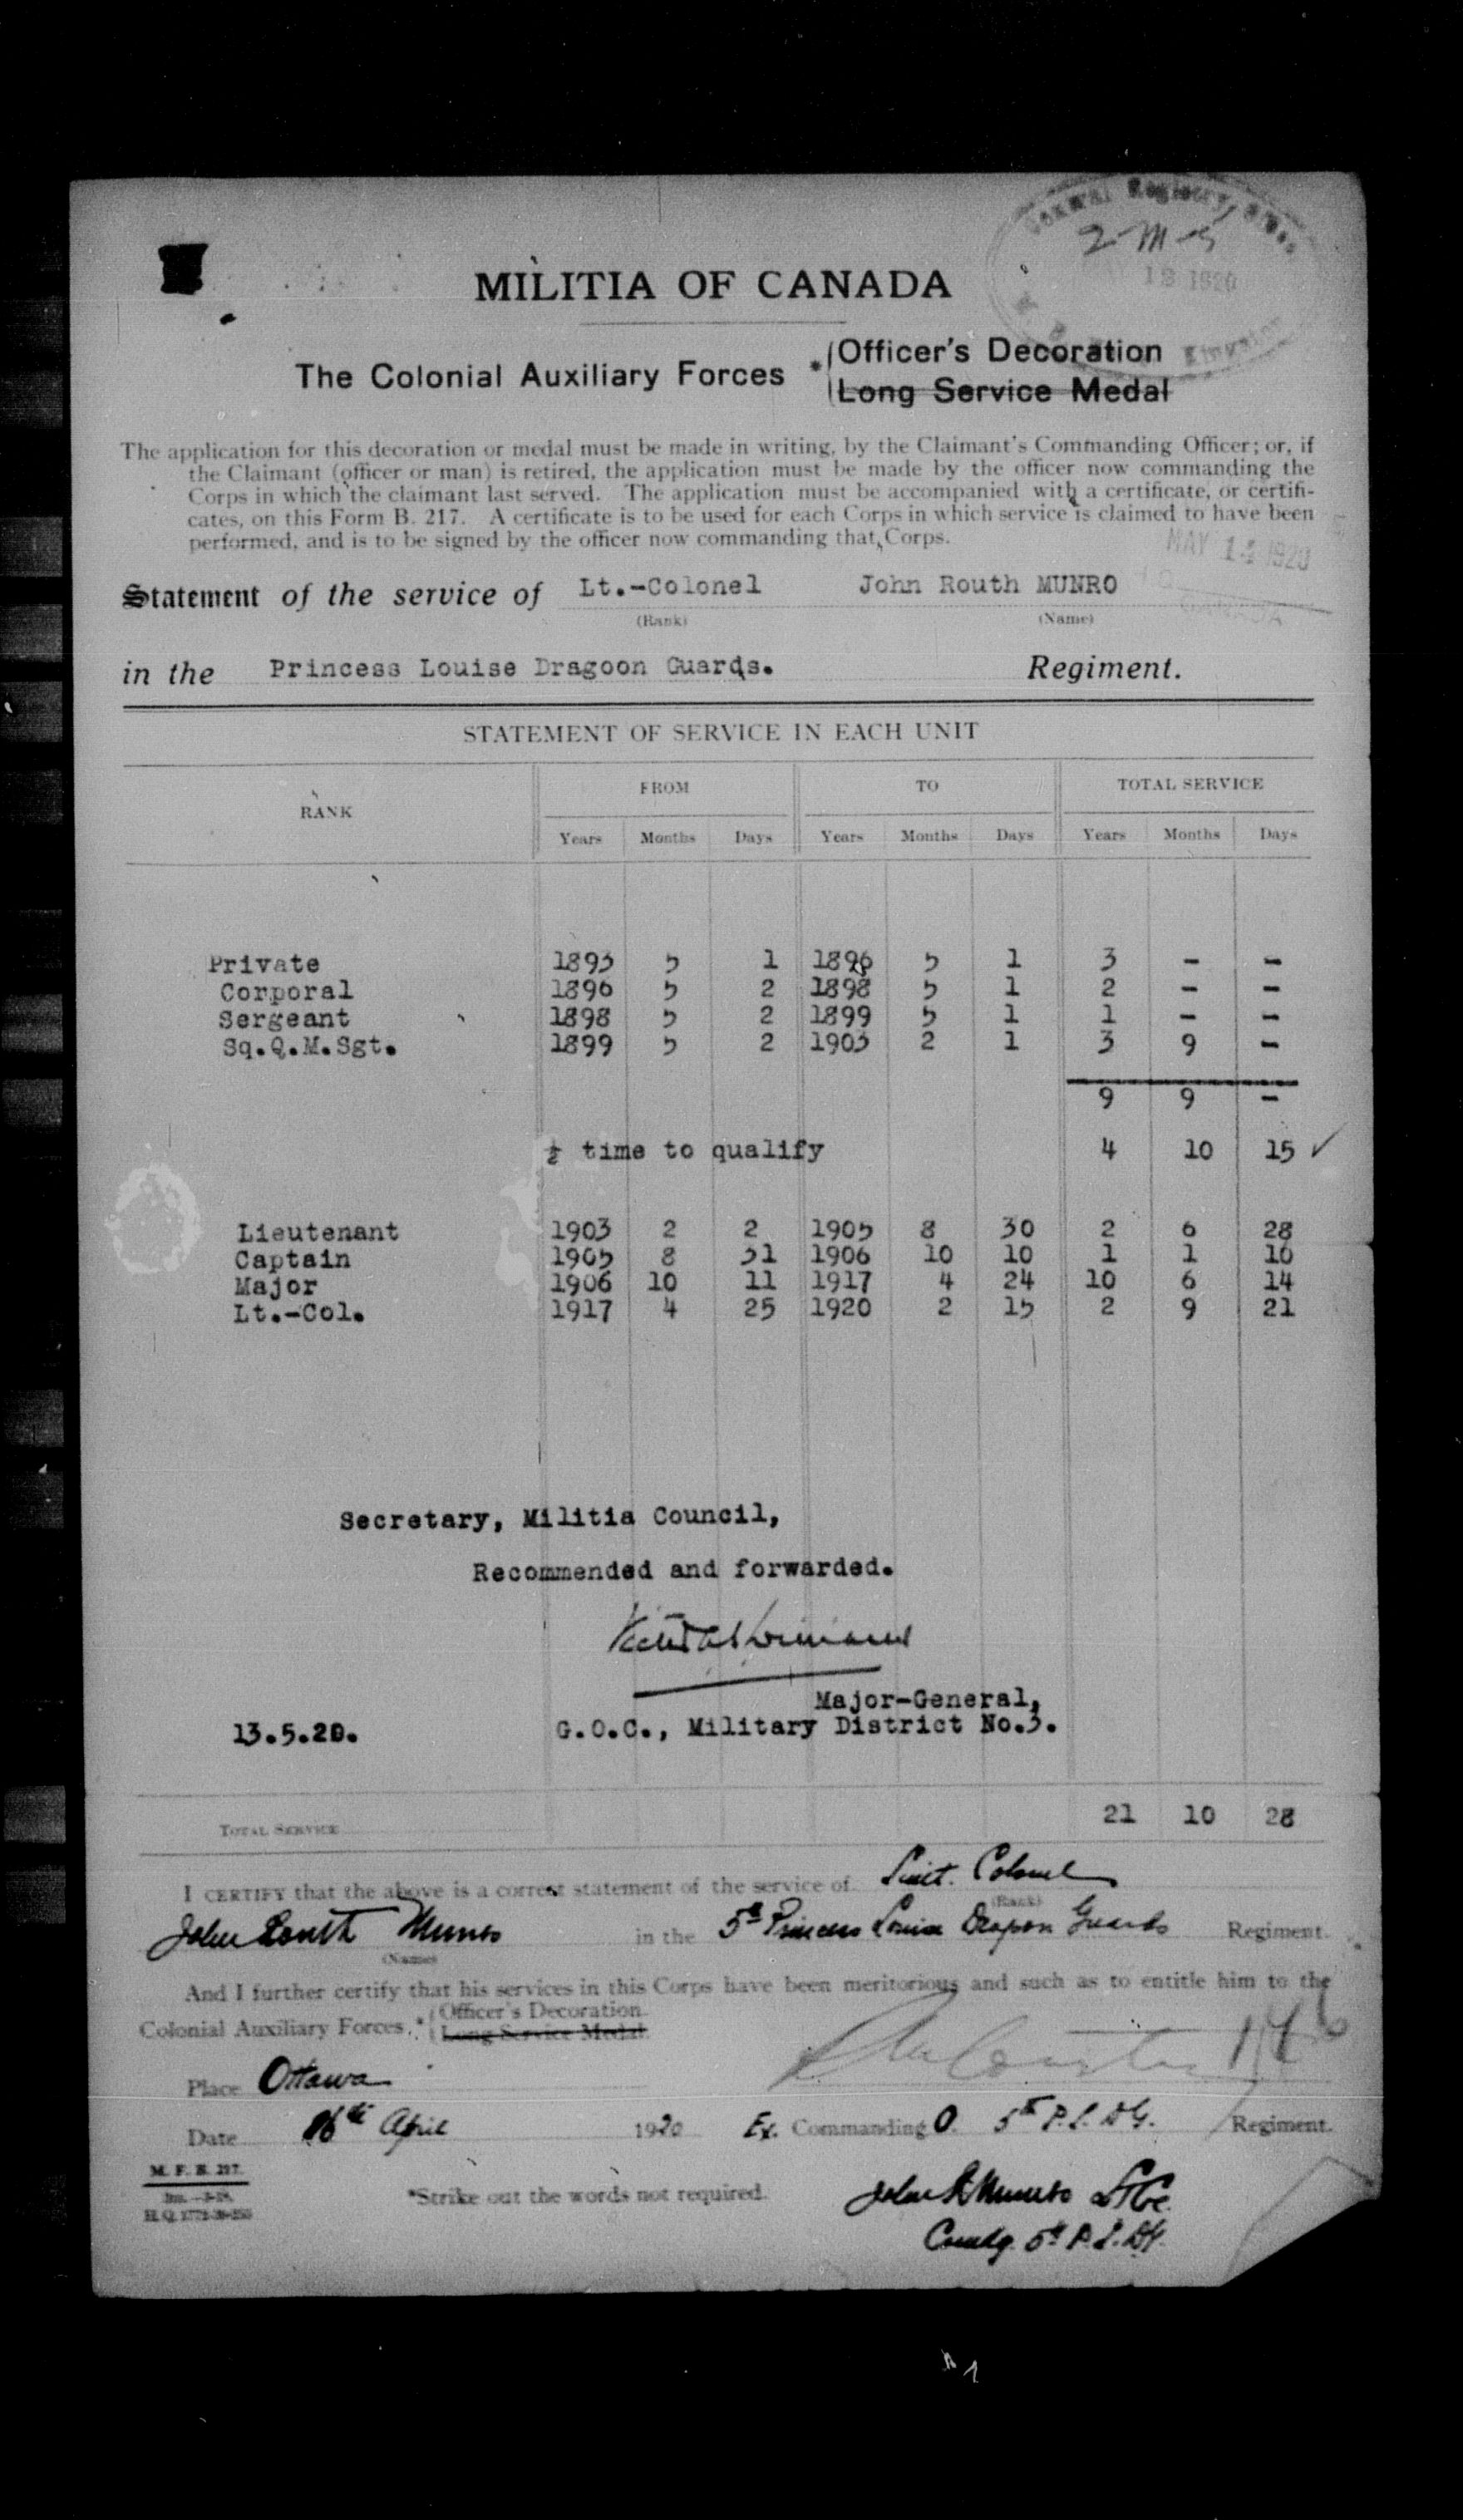 General Registry,
2-M-5
13 1920
Kingston
MILITIA OF CANADA
The Colonial Auxiliary Forces * Officer's Decoration
Long Service Medal
The application for this decoration or medal must be made in writing, by the Claimant's Commanding Officer; or, if
the Claimant (officer or man) is retired, the application must be made by the officer now commanding the
Corps in which the claimant last served. The application must be accompanied with a certificate, or certifi-
cates, on this Form B. 217. A certificate is to be used for each Corps in which service is claimed to have been
performed, and is to be signed by the officer now commanding that Corps.
MAY 14 1920
CANADA
Statement of the service of Lt.-Colonel John Routh MUNRO
(Rank) (Name)
in the Princess Louise Dragoon Guards. Regiment.
STATEMENT OF SERVICE IN EACH UNIT
RANK FROM TO TOTAL SERVICE
Years Months Days Years Months Days Years Months Days
Private 1893 5 1 1896 5 1 3 - -
Corporal 1896 5 2 1898 5 1 2 - -
Sergeant 1898 5 2 1899 5 1 1 - -
Sq.Q.M.Sgt. 1899 5 2 1903 2 1 3 9 -
9 9 -
½ time to qualify 4 10 15 ✓
Lieutenant 1903 2 2 1905 8 30 2 6 28
Captain 1905 8 31 1906 10 10 1 1 10
Major 1906 10 11 1917 4 24 10 6 14
Lt.-Col. 1917 4 25 1920 2 15 2 9 21
Secretary, Militia Council,
Recommended and forwarded.
Major-General,
13.5.20. G.O.C., Military District No.3.
TOTAL SERVICE 21 10 28
I CERTIFY that the above is a correct statement of the service of Lieut. Colonel
(Rank)
John Routh Munro in the 5th Princess Louise Dragoon Guards Regiment.
(Name)
And I further certify that his services in this Corps have been meritorious and such as to entitle him to the
Colonial Auxiliary Forces,* Officer's Decoration
Long Service Medal.
Place Ottawa
Date 16th April 1920 Ex. Commanding O. 5th P.L.D.G. Regiment.
M. F. B. 217.
*Strike out the words not required.
John R Munro Lt Col.
Comdg. 5th P.L.D.G.